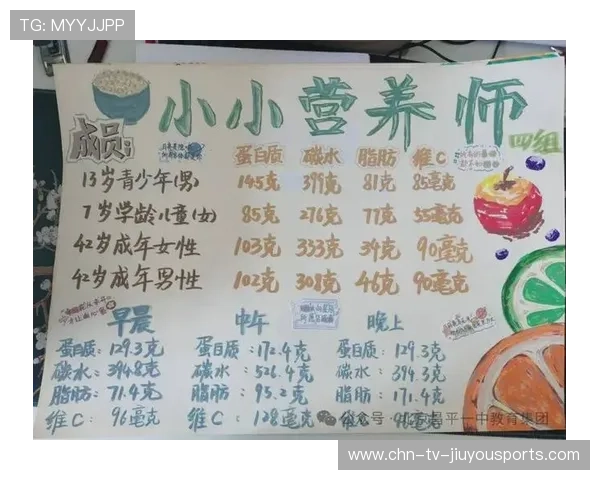 TG: MYYJJPP
小小营养师
四组
成员:
蛋白质 碳水 脂肪 维C
13岁青少年(男) 145克 399克 81克 85毫克
7岁学龄儿童(女) 85克 276克 77克 55毫克
42岁成年女性 103克 333克 39克 90毫克
42岁成年男性 102克 308克 46克 90毫克
早晨 中午 晚上
蛋白质:129.3克 蛋白质:172.4克 蛋白质:129.3克
碳水:394.8克 碳水:526.4克 碳水:394.3克
脂肪:71.4克 脂肪:95.2克 脂肪:171.4克
维C:96毫克 维C:128毫克
公众号 平一中教育集团
www.chn-tv-jiuyousports.com